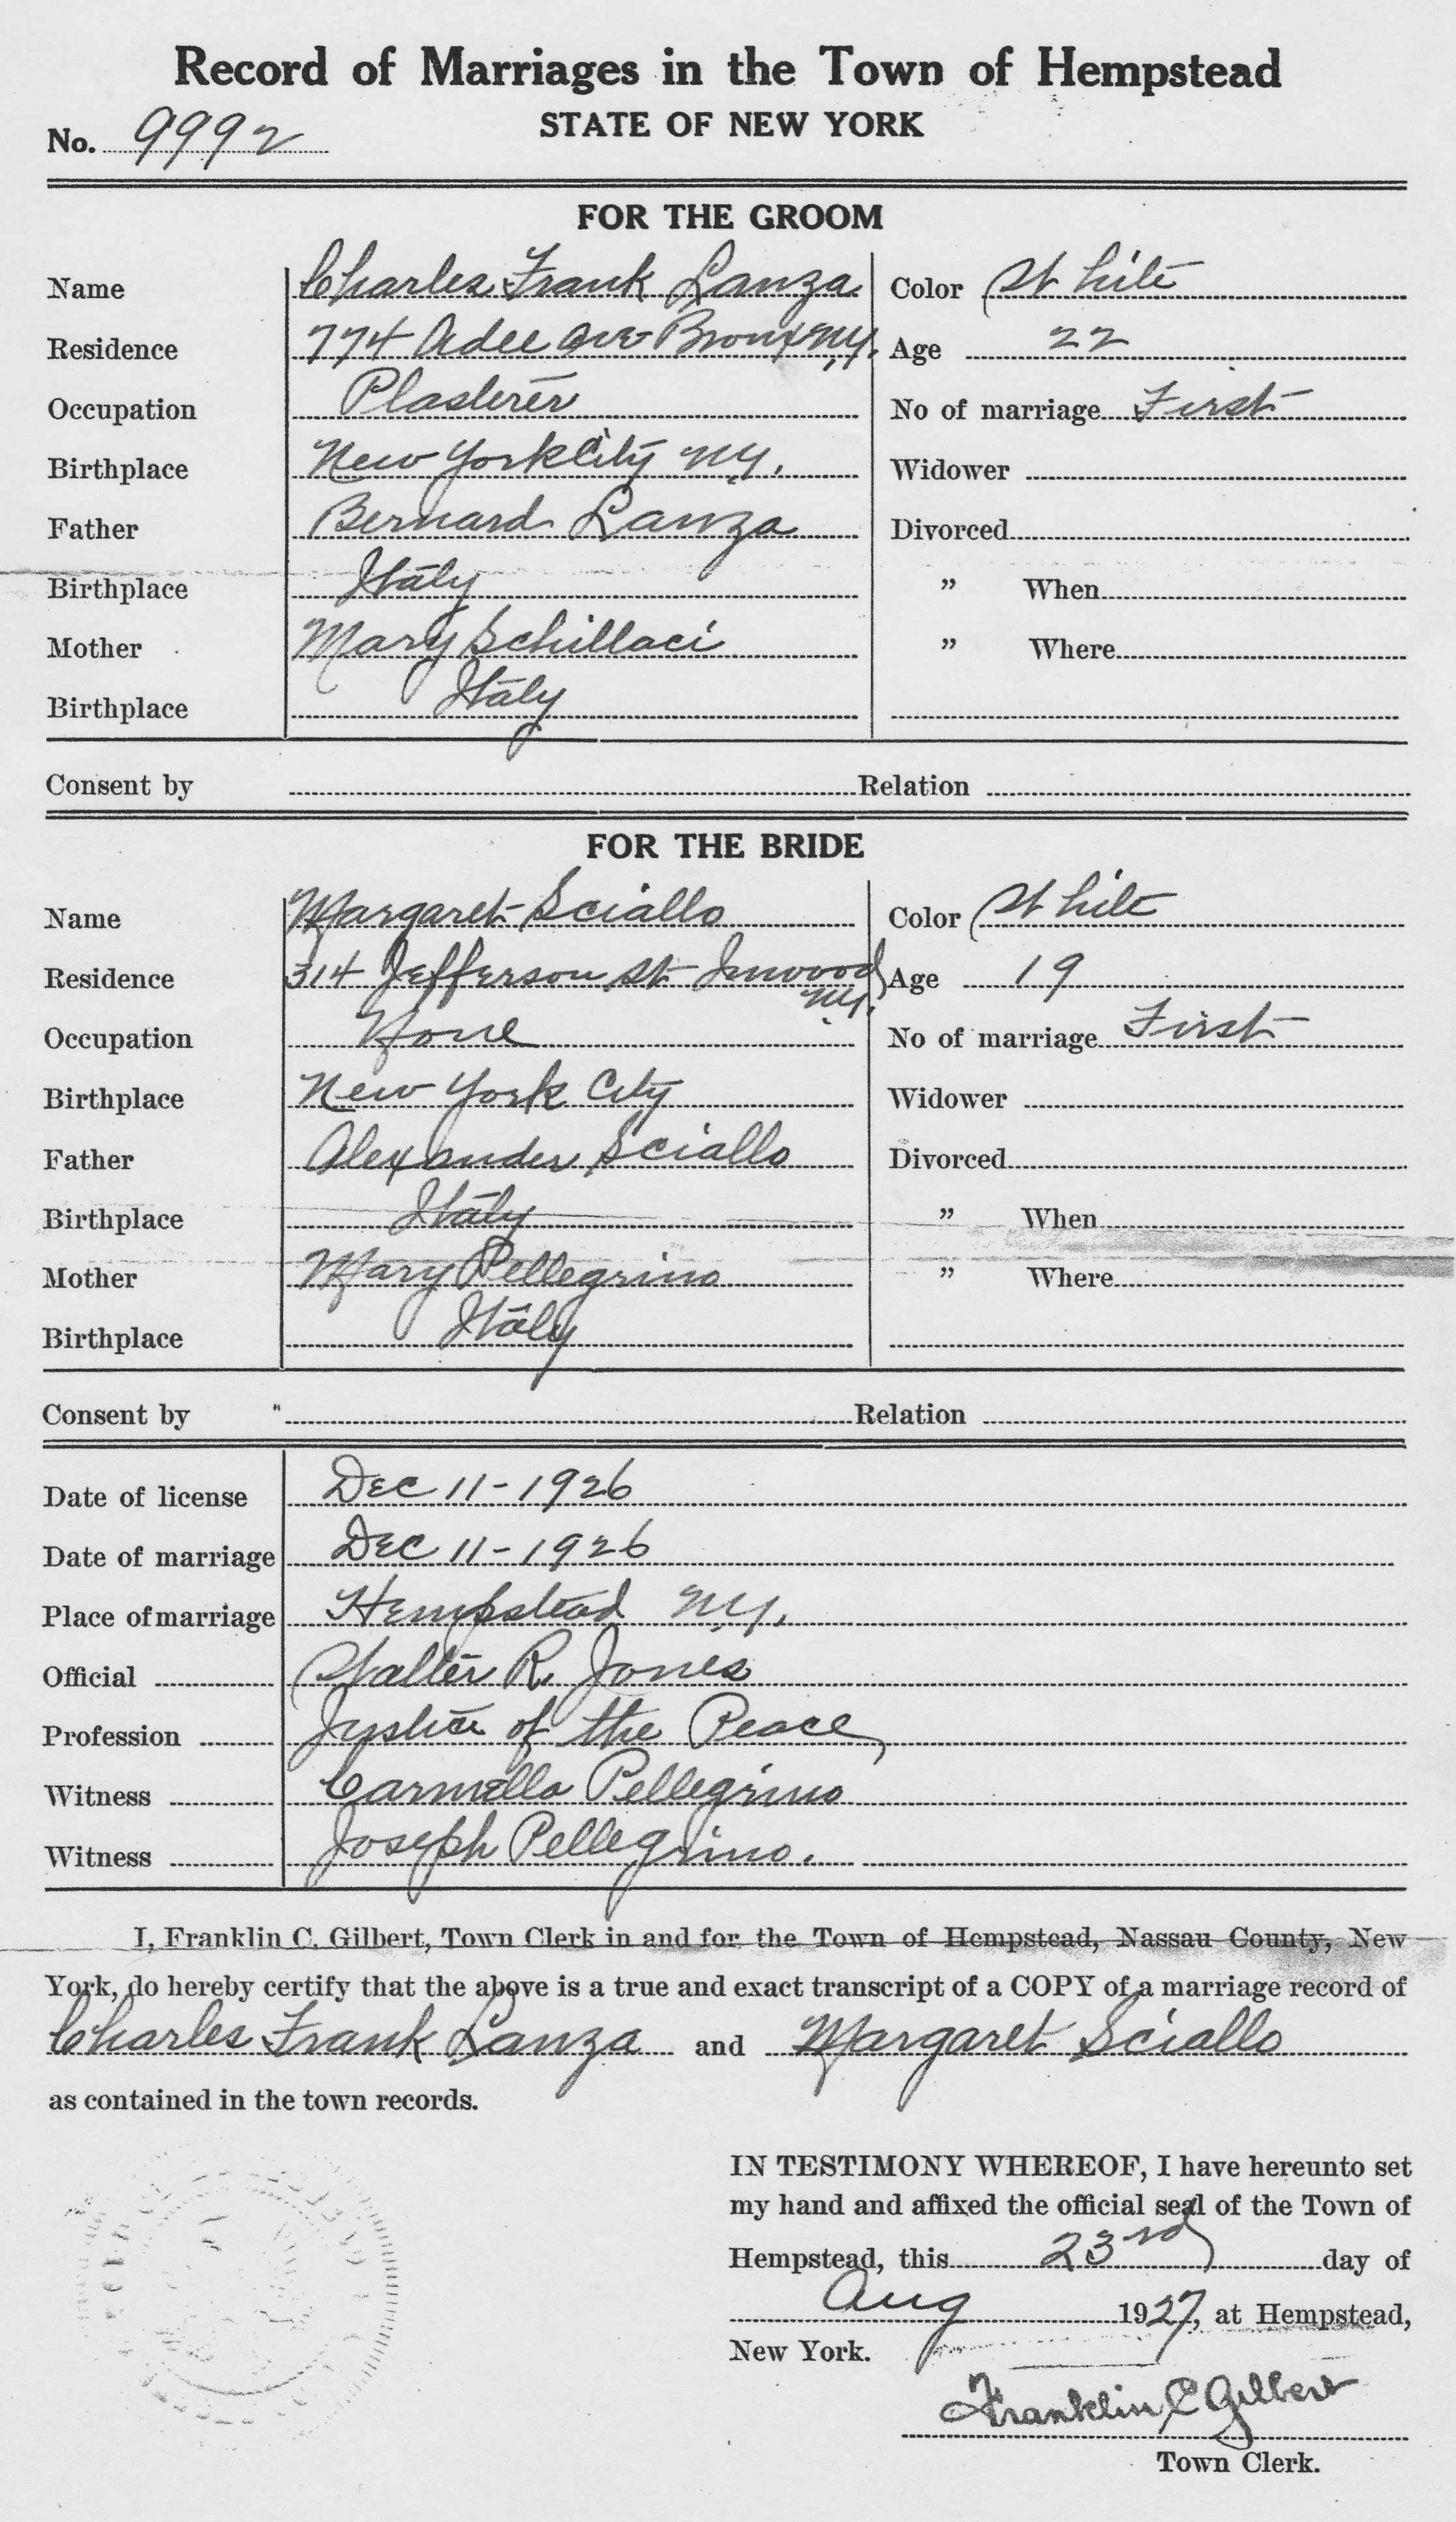 Record of Marriages in the Town of Hempstead
STATE OF NEW YORK
No. 9992
FOR THE GROOM
Name Charles Frank Lanza Color White
Residence 774 Adee Ave Bronx N.Y. Age 22
Occupation Plasterer No of marriage First
Birthplace New York City N.Y. Widower
Father Bernard Lanza Divorced
Birthplace Italy " When
Mother Mary Schillaci " Where
Birthplace Italy
Consent by Relation
FOR THE BRIDE
Name Margaret Sciallo Color White
Residence 314 Jefferson St Inwood N.Y. Age 19
Occupation None No of marriage First
Birthplace New York City Widower
Father Alexander Sciallo Divorced
Birthplace Italy " When
Mother Mary Pellegrino " Where
Birthplace Italy
Consent by " Relation
Date of license Dec 11-1926
Date of marriage Dec 11-1926
Place of marriage Hempstead N.Y.
Official Walter R. Jones
Profession Justice of the Peace
Witness Carmella Pellegrino
Witness Joseph Pellegrino.
I, Franklin C. Gilbert, Town Clerk in and for the Town of Hempstead, Nassau County, New
York, do hereby certify that the above is a true and exact transcript of a COPY of a marriage record of
Charles Frank Lanza and Margaret Sciallo
as contained in the town records.
IN TESTIMONY WHEREOF, I have hereunto set
my hand and affixed the official seal of the Town of
Hempstead, this 23rd day of
Aug 1927, at Hempstead,
New York.
Franklin C Gilbert
Town Clerk.